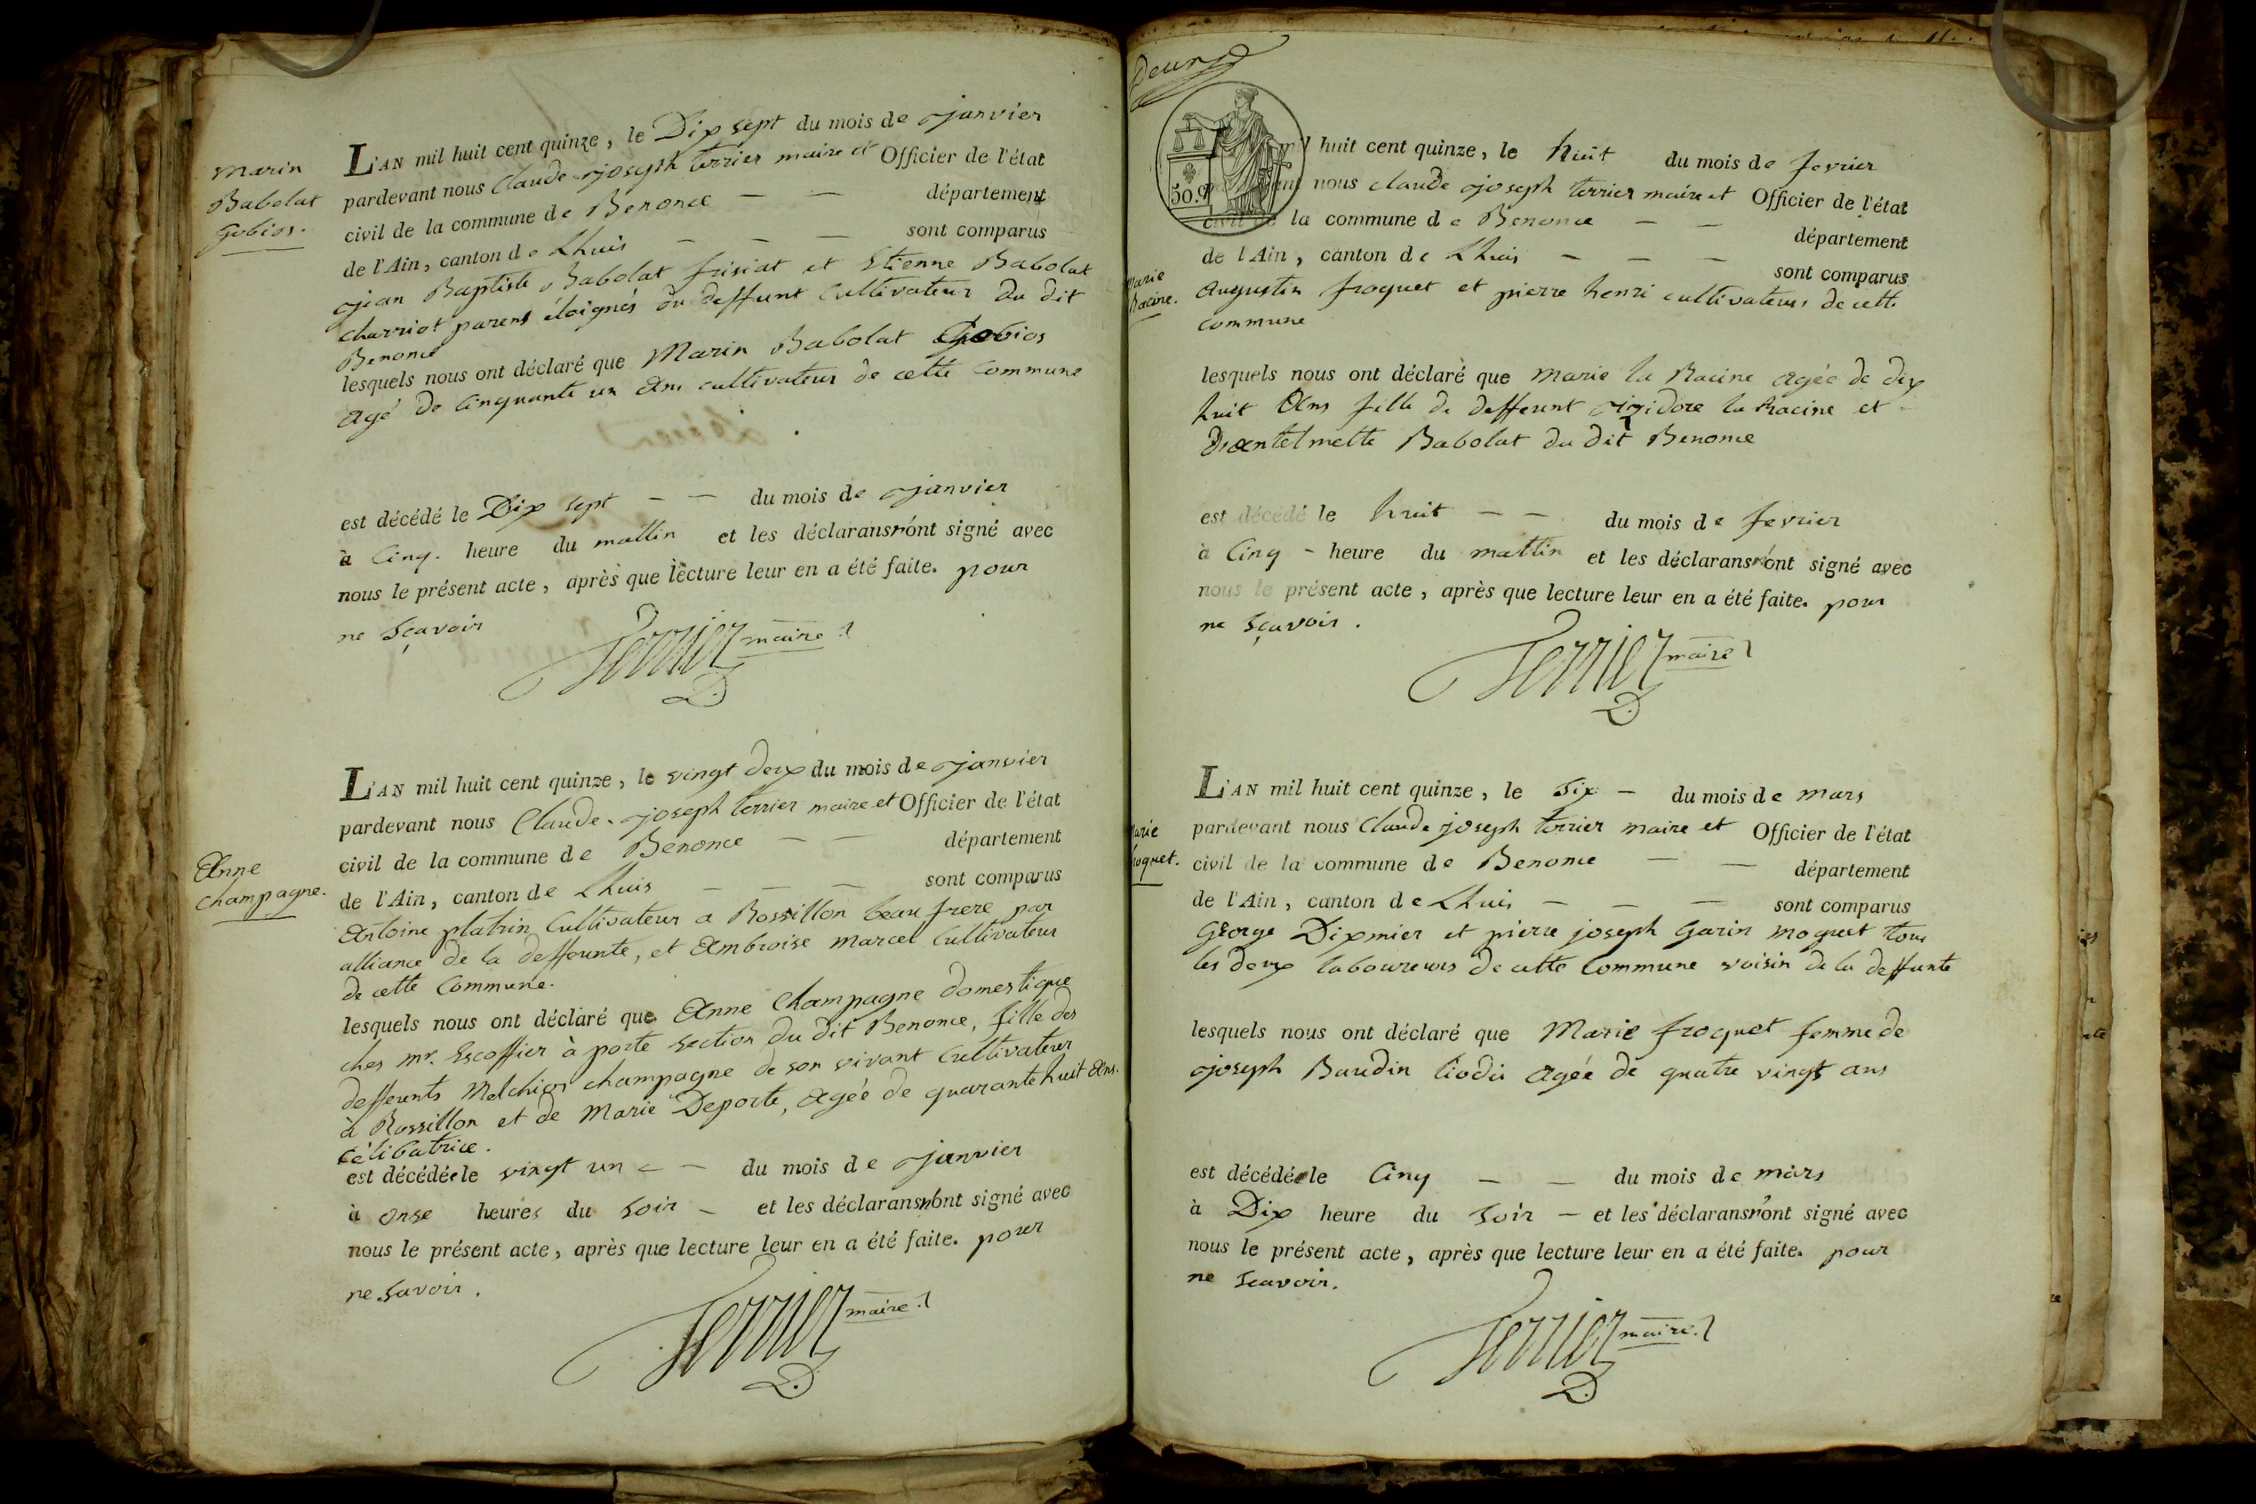 marin
Babolat
gobios.
L'AN mil huit cent quinze, le Dix sept du mois de janvier
pardevant nous Claude joseph terrier maire et Officier de l'état
civil de la commune de Benonce — — département
de l'Ain, canton de Lhuis — — — sont comparus
jean Baptiste Babolat frisiat et Etienne Babolat
charriot parens éloignés du deffunt Cultivateurs du dit
Benonce
lesquels nous ont déclaré que Marin Babolat Gobios
agé de Cinquante un ans cultivateur de cette Commune
est décédé le Dix sept — — du mois de janvier
à Cinq. heure du mattin et les déclarans n'ont signé avec
nous le présent acte, après que lecture leur en a été faite. pour
ne sçavoir
Terrier maire
Anne
champagne.
L'AN mil huit cent quinze, le vingt deux du mois de janvier
pardevant nous Claude joseph terrier maire et Officier de l'état
civil de la commune de Benonce — — département
de l'Ain, canton de Lhuis — — — sont comparus
Antoine platrin Cultivateur a Rossillon beau frere par
alliance de la deffeunte, et Ambroise marcel Cultivateur
de cette Commune.
lesquels nous ont déclaré que Anne Champagne domestique
ches mr. Escoffier à porte section du dit Benonce, fille des
deffeunts Melchior champagne de son vivant Cultivateur
à Rossillon et de Marie Deporte, agée de quarante huit ans.
célibatrice.
est décédée le vingt un — — du mois de janvier
à onse heures du soir — et les déclarans n'ont signé avec
nous le présent acte, après que lecture leur en a été faite. pour
ne savoir.
Terrier maire
50.c
mil huit cent quinze, le huit du mois de fevrier
nous claude joseph terrier maire et Officier de l'état
civil de la commune de Benonce — — département
de l'Ain, canton de Lhuis — — — sont comparus
marie
Racine.
Augustin froquet et pierre henri cultivateurs de cette
commune
lesquels nous ont déclaré que marie la Racine agée de dix
huit ans fille de deffeunt isidore la Racine et
D'antelmette Babolat du dit Benonce
est décédé le huit — — du mois de fevrier
à Cinq — heure du mattin et les déclarans n'ont signé avec
nous le présent acte, après que lecture leur en a été faite. pour
ne sçavoir.
Terrier maire
L'AN mil huit cent quinze, le six — du mois de mars
pardevant nous Claude joseph terrier maire et Officier de l'état
civil de la commune de Benonce — — département
de l'Ain, canton de Lhuis — — — sont comparus
George Dixmier et pierre joseph Garin moquet tous
les deux laboureurs de cette Commune voisin de la deffunte
lesquels nous ont déclaré que Marie froquet femme de
joseph Baudin agée de quatre vingt ans
est décédée le Cinq — — du mois de mars
à Dix heure du soir — et les déclarans n'ont signé avec
nous le présent acte, après que lecture leur en a été faite. pour
ne scavoir.
Terrier maire